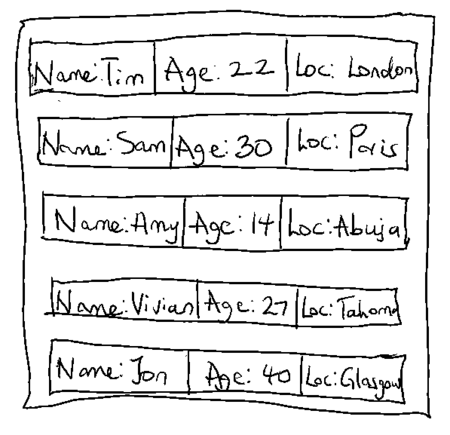 Name: Tim Age: 22 Loc: London
Name: Sam Age: 30 Loc: Paris
Name: Amy Age: 14 Loc: Abuja
Name: Vivian Age: 27 Loc: Tahoma
Name: Jon Age: 40 Loc: Glasgow